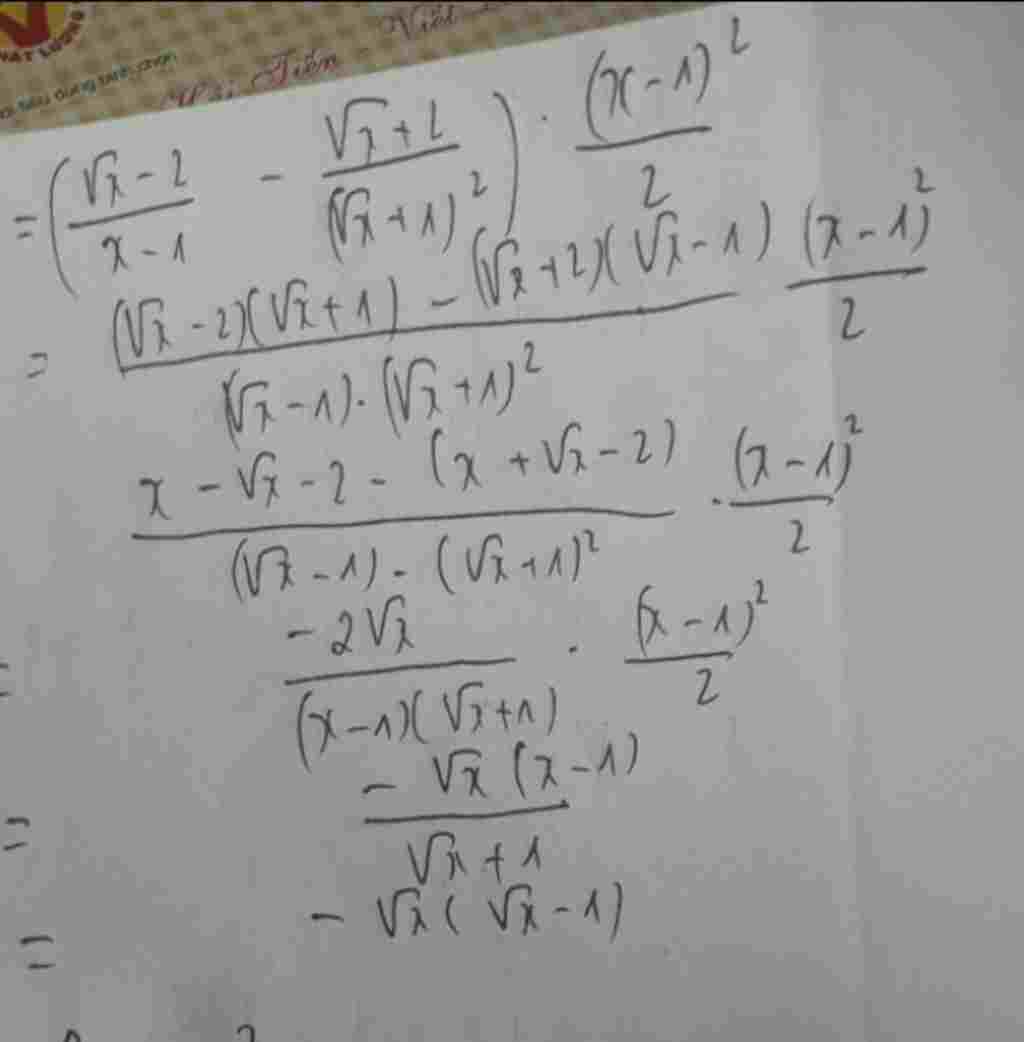 Việt
Tiến
= (\frac{√x - 2}{x - 1} - \frac{√x + 2}{(√x + 1)^2}) · \frac{(x - 1)^2}{2}
= \frac{(√x - 2)(√x + 1) - (√x + 2)(√x - 1)}{(√x - 1) · (√x + 1)^2} \frac{(x - 1)^2}{2}
\frac{x - √x - 2 - (x + √x - 2)}{(√x - 1) · (√x + 1)^2} · \frac{(x - 1)^2}{2}
= \frac{- 2√x}{(x - 1)(√x + 1)} · \frac{(x - 1)^2}{2}
= \frac{- √x (x - 1)}{√x + 1}
= - √x ( √x - 1)